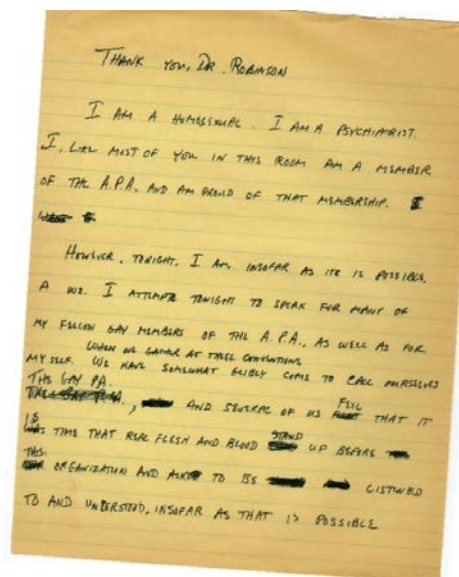 THANK YOU, DR. ROBINSON
I AM A HOMOSEXUAL. I AM A PSYCHIATRIST.
I, LIKE MOST OF YOU IN THIS ROOM AM A MEMBER
OF THE A.P.A. AND AM PROUD OF THAT MEMBERSHIP. I
HOWEVER, TONIGHT, I AM, INSOFAR AS IT IS POSSIBLE,
A WE. I ATTEMPT TONIGHT TO SPEAK FOR MANY OF
MY FELLOW GAY MEMBERS OF THE A.P.A., AS WELL AS FOR
WHEN WE GATHER AT THESE CONVENTIONS
MYSELF. WE HAVE SOMEWHAT GLIBLY COME TO CALL OURSELVES
THE GAY PA
, AND SEVERAL OF US FEEL THAT IT
IS TIME THAT REAL FLESH AND BLOOD STAND UP BEFORE
THIS
ORGANIZATION AND ASK TO BE LISTENED
TO AND UNDERSTOOD, INSOFAR AS THAT IS POSSIBLE